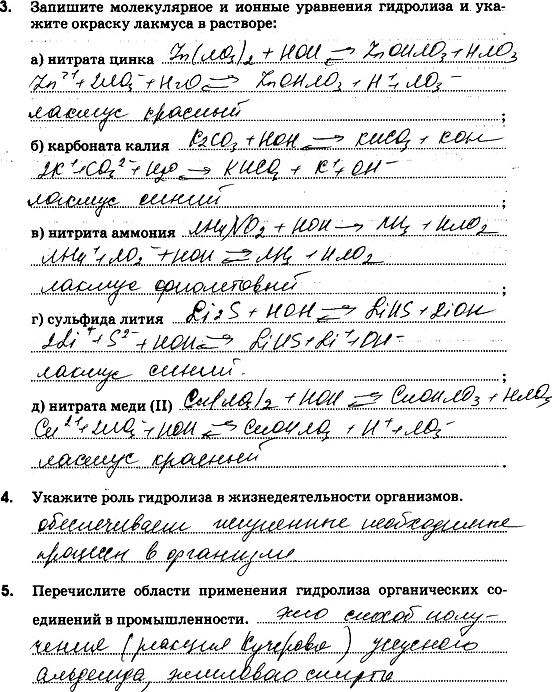 3. Запишите молекулярное и ионные уравнения гидролиза и ука-
жите окраску лакмуса в растворе:
а) нитрата цинка Zn(NO3)2 + HOH ⇌ ZnOHNO3 + HNO3
Zn2+ + 2NO3- + H2O ⇌ ZnOHNO3 + H+ + NO3-
лакмус красный ;
б) карбоната калия K2CO3 + HOH ⇌ KHCO3 + KOH
2K+ + CO3 2- + H2O ⇌ KHCO3 + K+ + OH-
лакмус синий ;
в) нитрита аммония NH4NO2 + HOH → NH3 + HNO2
NH4+ + NO2- + HOH ⇌ NH3 + HNO2
лакмус фиолетовый ;
г) сульфида лития Li2S + HOH ⇌ LiHS + LiOH
2Li+ + S2- + HOH ⇌ LiHS + Li+ + OH-
лакмус синий. ;
д) нитрата меди (II) Cu(NO3)2 + HOH ⇌ CuOHNO3 + HNO3
Cu2+ + 2NO3- + HOH ⇌ CuOHNO3 + H+ + NO3-
лакмус красный .
4. Укажите роль гидролиза в жизнедеятельности организмов.
обеспечивает жизненные необходимые
процессы в организме
5. Перечислите области применения гидролиза органических со-
единений в промышленности. это способ полу-
чения (реакция Кучерова) уксусного
альдегида, этилового спирта